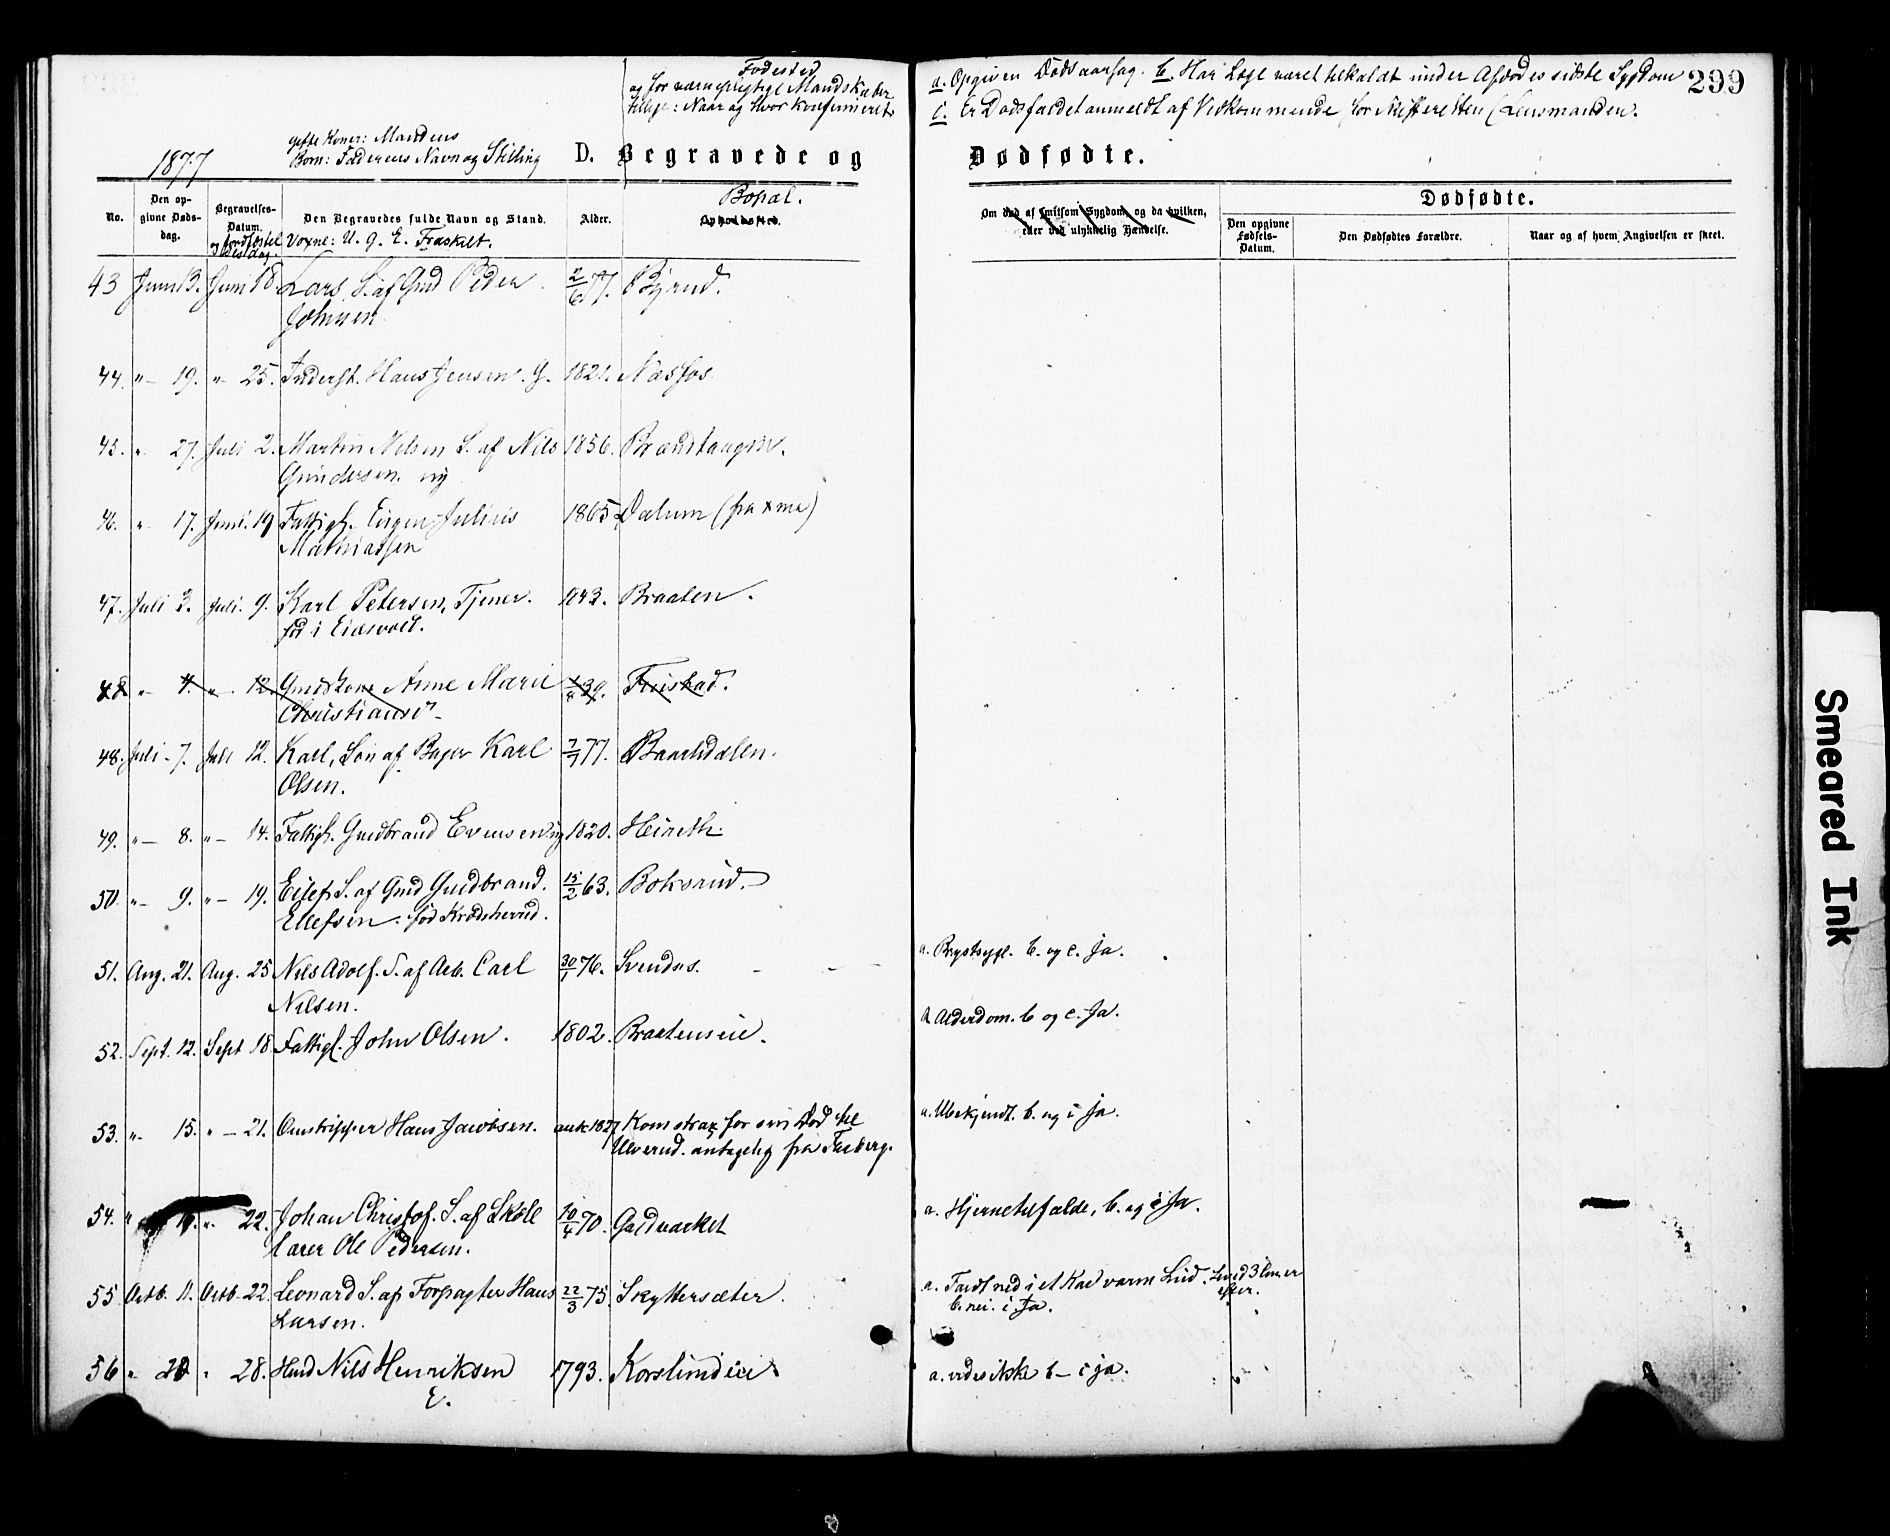 Fødested
og for værnepligtige Mandskaber
tillige: Naar og hvor konfirmeret.
a. Opgiven Dødsaarsag. b. Har Læge været tilkaldt under Afdødes sidste Sygdom
299
c. Er Dødsfaldet anmeldt af Vedkommende for Skifteretten (Lensmanden.
gifte Koner: Mandens
Børn: Faderens Navn og Stilling
1877
D. Begravede og
Dødfødte.
No.
Den opgivne Døds-dag.
Begravelses-Datum.
Jordfæstelsesdag.
Den Begravedes fulde Navn og Stand.
Voxne: U. g. E. Fraskilt.
Alder.
Bopæl.
Opholdssted.
Om død af smitsom Sygdom, og da hvilken,
eller ved ulykkelig Hændelse.
Dødfødte.
Den opgivne Fødsels-Datum.
Den Dødfødtes Forældre.
Naar og af hvem Angivelsen er skeet.
43 Juni 13. Juni 18. Lars S. af Gmd Peder 2/6 77.
Johnsen
44. "– 19. "– 25. Inderst. Hans Jensen. G. 1821. Næsfos.
45. " 27. Juli 2. Martin Nilsen S. af Nils 1856. Brændtangen.
Gundersen. ug
46. " 17. Juni. 19 Fattigl. Eugen Julius 1865 Dælum (fra Xnia)
Mathiassen
47. Juli 3. Juli. 9. Karl Petersen, Tjener. 1843. Braaten.
fød i Eidsvold.
48 "– 4. "– 12. Gmdskone Anne Marie 39. Frisstad.
Christiansd.
48. Juli 7. Juli 12. Karl, Søn af Bager Karl 7/7 77.
Olsen.
49. "– 8. "– 14. Fattigl. Gudbrand Evensen ug 1820.
50. "– 9. "– 19. Eilef S. af Gmd Gudbrand. 15/2 63. Boksrud.
Ellefsen. fød Krødsherred.
51. Aug. 21. Aug. 25 Nils Adolf. S. af Arb. Carl 30/1 76. Svendss. a. Brystsygd. b. og c. Ja.
Nilsen.
52. Sept. 12. Sept 18 Fattigl. John Olsen. 1802. Braateneie. a Alderdom. b og c. Ja.
53. "– 15. " – 21. Omstripper Hans Jacobsen. ant. 1827 Kom strax før sin Død til a. Ubekjendt. b. og c ja.
Ulverud. antagelig fra Faaberg.
54. " 22. Johan Christof. S. af Skole 10/4 70. Guldværket a. Hjernetilfælde, b. og c Ja.
lærer Ole Pedersen.
55 Octb. 11. Octb. 22. Leonard S. af Forpagter Hans 22/3 75. Skyttersæter. a. Faldt ned i et Kar varm Lud. Leved 3 Timer
Larsen. b. nei. c. Ja. efter.
56 " 20 " 28. Hmd Nils Henriksen 1793. Korslundeie a. vides ikke b – c ja.
E.
Smeared Ink